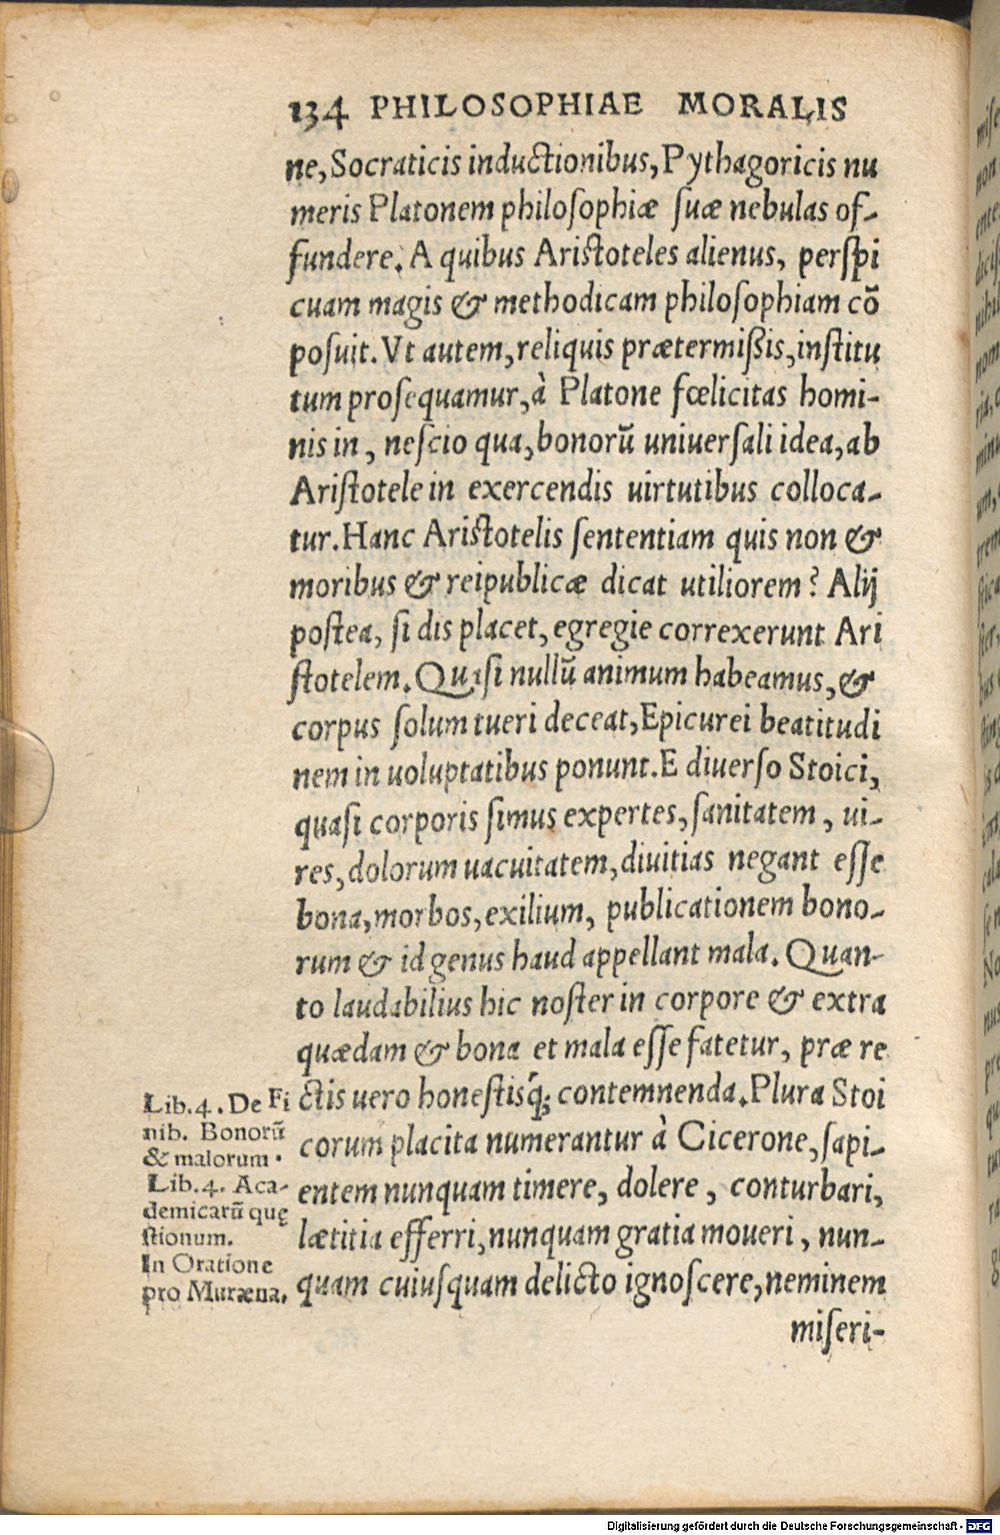 134 PHILOSOPHIAE MORALIS
ne, Socraticis inductionibus, Pythagoricis nu
meris Platonem philoſophiæ ſuæ nebulas of-
fundere. A quibus Ariſtoteles alienus, perſpi
cuam magis & methodicam philoſophiam cō
poſuit. Vt autem, reliquis prætermißis, inſtitu
tum proſequamur, à Platone fœlicitas homi-
nis in, neſcio qua, bonorū uniuerſali idea, ab
Ariſtotele in exercendis uirtutibus colloca-
tur. Hanc Ariſtotelis ſententiam quis non &
moribus & reipublicæ dicat utiliorem? Alij
poſtea, ſi dis placet, egregie correxerunt Ari
ſtotelem. Quaſi nullū animum habeamus, &
corpus ſolum tueri deceat, Epicurei beatitudi
nem in uoluptatibus ponunt. E diuerſo Stoici,
quaſi corporis ſimus expertes, ſanitatem, ui-
res, dolorum uacuitatem, diuitias negant eſſe
bona, morbos, exilium, publicationem bono-
rum & id genus haud appellant mala. Quan-
to laudabilius hic noſter in corpore & extra
quædam & bona et mala eſſe fatetur, præ re
ctis uero honeſtisq́; contemnenda. Plura Stoi
corum placita numerantur à Cicerone, ſapi-
entem nunquam timere, dolere, conturbari,
lætitia efferri, nunquam gratia moueri, nun-
quam cuiuſquam delicto ignoſcere, neminem
miſeri-
Lib. 4. De Fi
nib. Bonorū
& malorum.
Lib. 4. Aca-
demicarū quę
ſtionum.
In Oratione
pro Muræna.
Digitalisierung gefördert durch die Deutsche Forschungsgemeinschaft - DFG